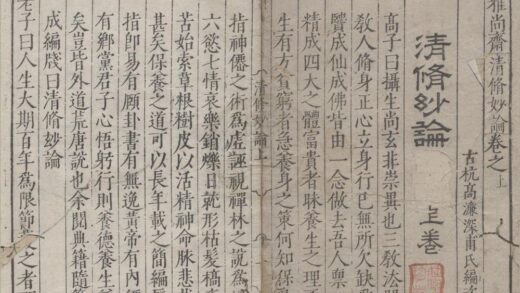 雅尚齋清脩妙論卷之上
古杭高濂深甫氏編次
清脩玅論 上卷
高子曰攝生尚玄非崇異也三敎法門
敎人脩身正心立身行己無所欠缺
成仙成佛皆由一念做去吾人稟
精成四大之體富貴者昧養生之理不
生有方貧窮者急養身之策何知保
清脩玅論上
指神僊之術爲虛誕視禪林之說爲
六慾七情哀樂銷爍日就形枯髪槁
苦始索草根樹皮以活精神命脉悲
甚矣保養之道可以長年載之簡編
指卽易有頤卦書有無逸黃帝有內
有鄕黨君子心悟躬行則養德養生
矣豈皆外道荒唐說也余閱典籍隨
成編牋曰清脩玅論
老子曰人生大期百年爲限節護之者